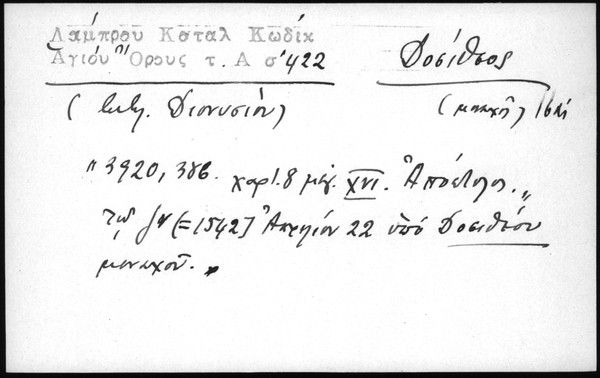 Λάμπρου Καταλ Κωδίκ
Ἁγίου Ὄρους τ. Α σ' 422
Δοσίθεος
Διονυσίου)
(μοναχὸς)
" 3920, 386. χαρτ. 8 μεγ. XVI. Ἀπόστολος. "
(= 1542) Ἀπριλίου 22 ὑπὸ Δοσιθέου
μοναχοῦ.